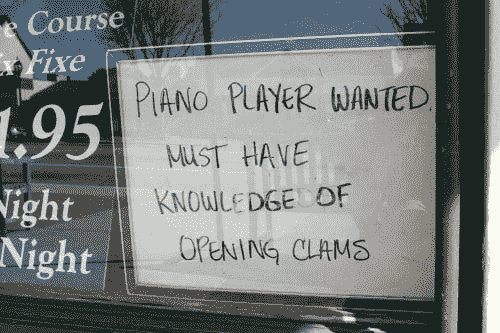 Course
Fixe
.95
Night
Night
PIANO PLAYER WANTED
MUST HAVE
KNOWLEDGE OF
OPENING CLAMS